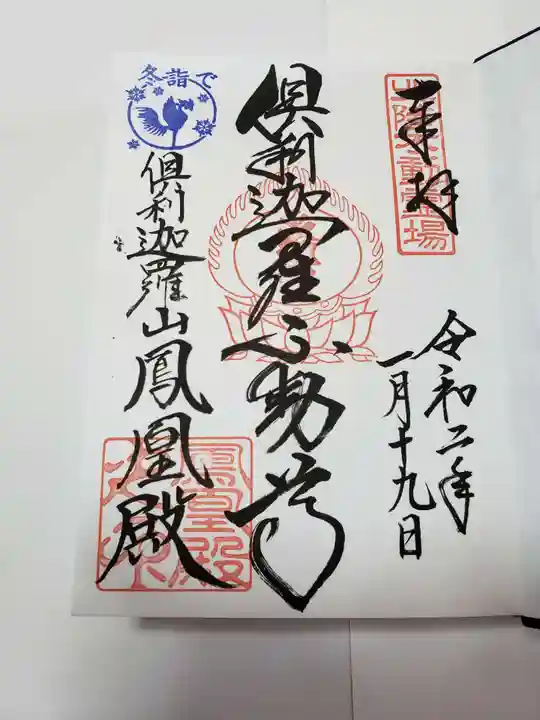 奉拝
不動霊場
令和二年
一月十九日
倶利迦羅不動尊
冬詣で
倶利迦羅山鳳凰殿
鳳凰殿